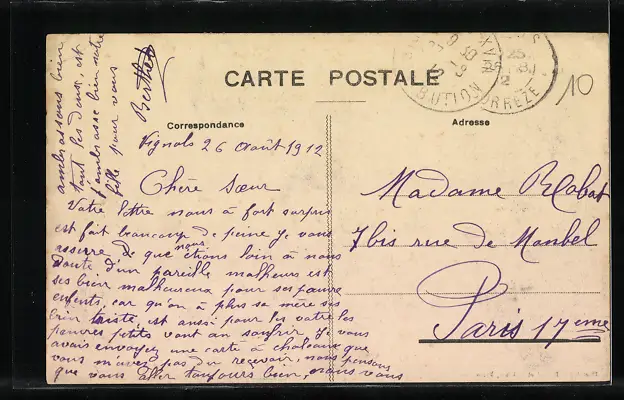 CARTE POSTALE
Correspondance
Adresse
10
Vignols 26 Août 1912
Chère Sœur
Votre lettre nous à fort surpris
est fait beaucoup de peine Je vous
assure de que nous étions loin à nous
doute d'un pareille malheurs est
ses bien malheureux pour ses pauvre
enfents, car qu'on à plus sa mère ses
bien triste est aussi pour les votre les
pauvres petits vont an soufrir Je vous
avais envoyez une carte à que
vous m'avez pas du recevoir, nous pensons
que vous aller toujours bien, nous vous
ambrassons bien
tout les deux, est
ambrasse bien votre
fille pour vous
Berthe
Madame
7bis rue de
Paris 17eme
BUTION
CORREZE
25